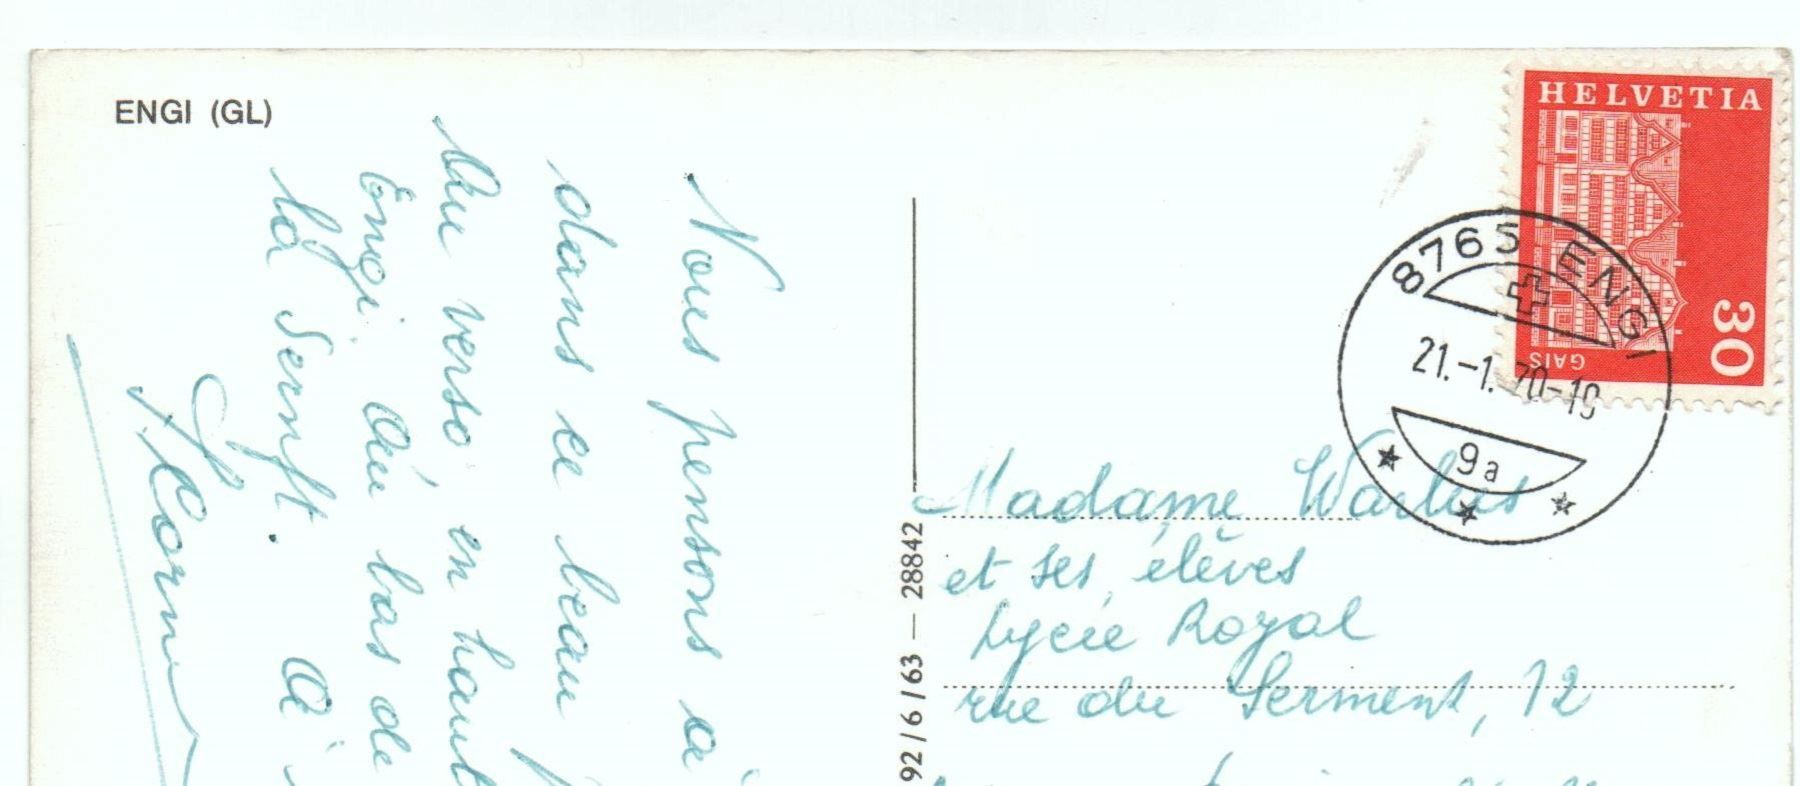 ENGI (GL)
Nous pensons à
dans ce beau
Au verso, en haut
Engi. Au bas de
la Sernft. A
HELVETIA
30
GAIS
8765 ENGI
21.-1.70-19
9a
92/6/63 — 28842
Madame
et ses élèves
Lycée Royal
rue du Serment, 12